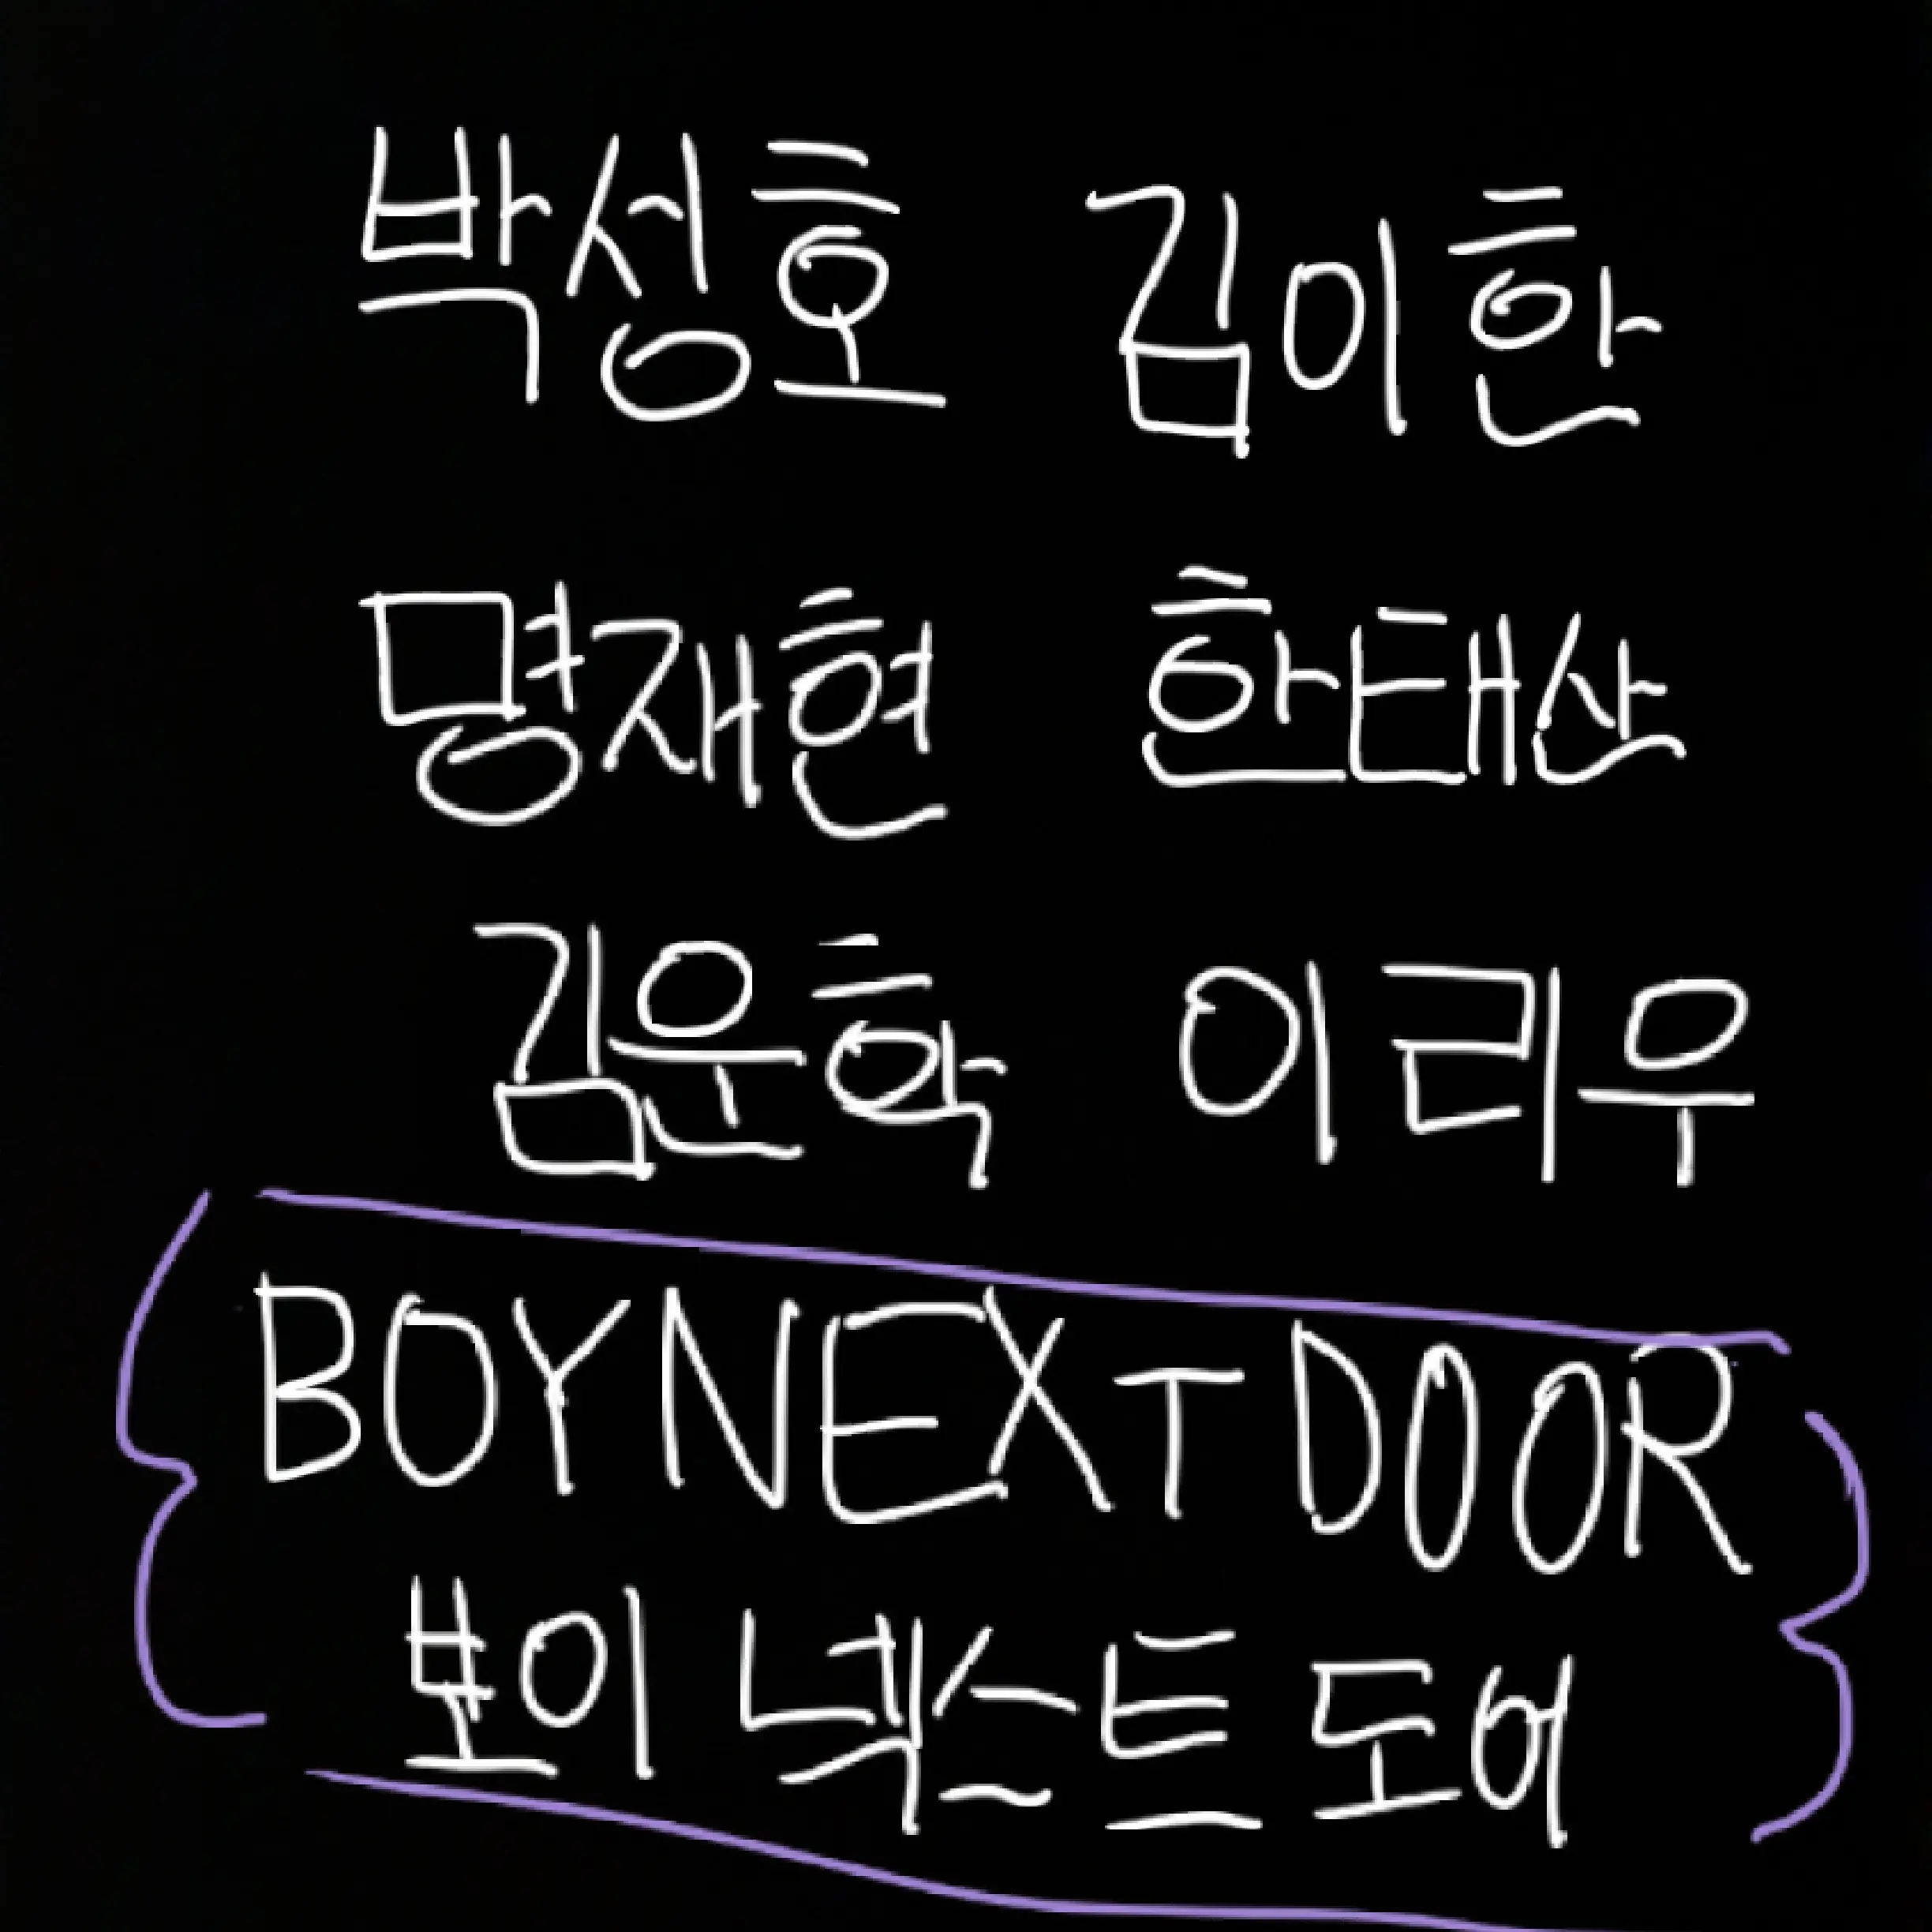 박성호 김이한
명재현 한태산
김운학 이리우
BOYNEXTDOOR
보이넥스트도어